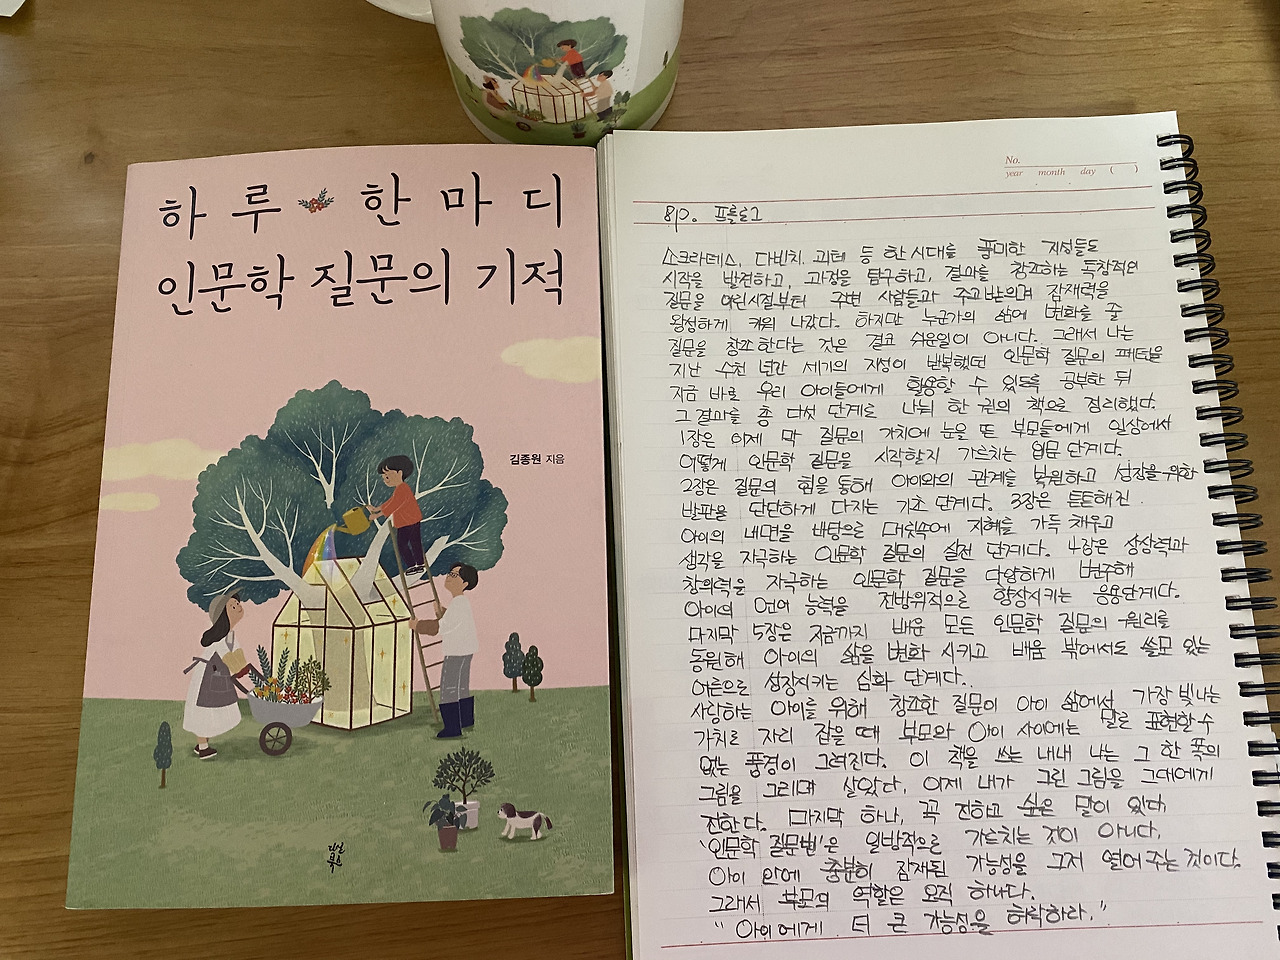 하루 한마디
인문학 질문의 기적
김종원 지음
다산
북스
No.
year month day ( )
8p. 프롤로그
소크라테스, 다빈치, 괴테 등 한 시대를 풍미한 지성들도
시작을 발견하고, 과정을 탐구하고, 결과를 창조하는 독창적인
질문을 어린시절부터 주변 사람들과 주고받으며 잠재력을
왕성하게 키워 나갔다. 하지만 누군가의 삶에 변화를 줄
질문을 창조한다는 것은 결코 쉬운일이 아니다. 그래서 나는
지난 수천 년간 세기의 지성이 반복했던 인문학 질문의 패턴을
지금 바로 우리 아이들에게 활용할 수 있도록 공부한 뒤
그 결과를 총 다섯 단계로 나눠 한 권의 책으로 정리했다.
1장은 이제 막 질문의 가치에 눈을 뜬 부모들에게 일상에서
어떻게 인문학 질문을 시작할지 가르치는 입문 단계다.
2장은 질문의 힘을 통해 아이와의 관계를 복원하고 성장을 위한
발판을 단단하게 다지는 기초 단계다. 3장은 튼튼해진
아이의 내면을 바탕으로 머릿속에 지혜를 가득 채우고
생각을 자극하는 인문학 질문의 실전 단계다. 4장은 상상력과
창의력을 자극하는 인문학 질문을 다양하게 변주해
아이의 언어 능력을 전방위적으로 향상시키는 응용단계다.
마지막 5장은 지금까지 배운 모든 인문학 질문의 원리를
동원해 아이의 삶을 변화 시키고 배움 밖에서도 쓸모 있는
어른으로 성장시키는 심화 단계다.
사랑하는 아이를 위해 창조한 질문이 아이 삶에서 가장 빛나는
가치로 자리 잡을 때 부모와 아이 사이에는 말로 표현할 수
없는 풍경이 그려진다. 이 책을 쓰는 내내 나는 그 한 폭의
그림을 그리며 살았다. 이제 내가 그린 그림을 그대에게
전한다. 마지막 하나, 꼭 전하고 싶은 말이 있다.
'인문학 질문법'은 일방적으로 가르치는 것이 아니다.
아이 안에 충분히 잠재된 가능성을 그저 열어 주는 것이다.
그래서 부모의 역할은 오직 하나다.
"아이에게 더 큰 가능성을 허락하라."